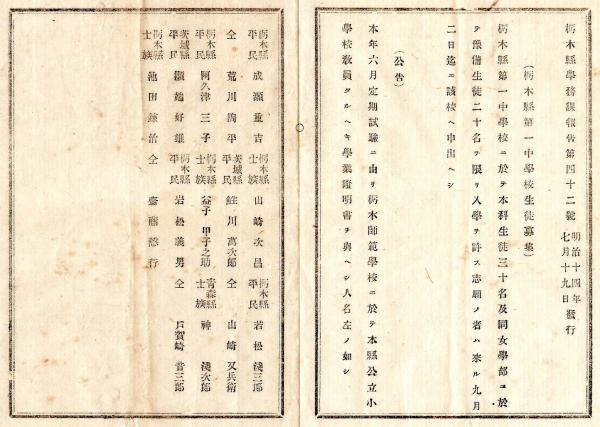 栃木縣學務課報告第四十二號
明治十四年七月十九日發行
(栃木縣第一中學校生徒募集)
栃木縣第一中學校ニ於テ本科生徒三十名及同女學部ニ於
テ豫備生徒二十名ヲ限リ入學ヲ許ス志願ノ者ハ來ル九月
二日迄ニ該校ヘ申出ヘシ
(公告)
本年六月定期試驗ニ由リ栃木師範學校ニ於テ本縣公立小
學校敎員タルヘキ學業證明書ヲ與ヘシ人名左ノ如シ
栃木縣平民 成瀬重吉 栃木縣士族 山崎次昌 栃木縣平民 若松淺三郎
仝 荒川 平 茨城縣平民 川萬次郎 仝 山崎又兵衛
栃木縣平民 阿久津三子 栃木縣士族 益子甲子之助 青森縣士族 神淺次郎
茨城縣平民 好雄 栃木縣平民 岩松義男 仝 戸賀崎音三郎
栃木縣士族 池田 治 仝 齋藤 行